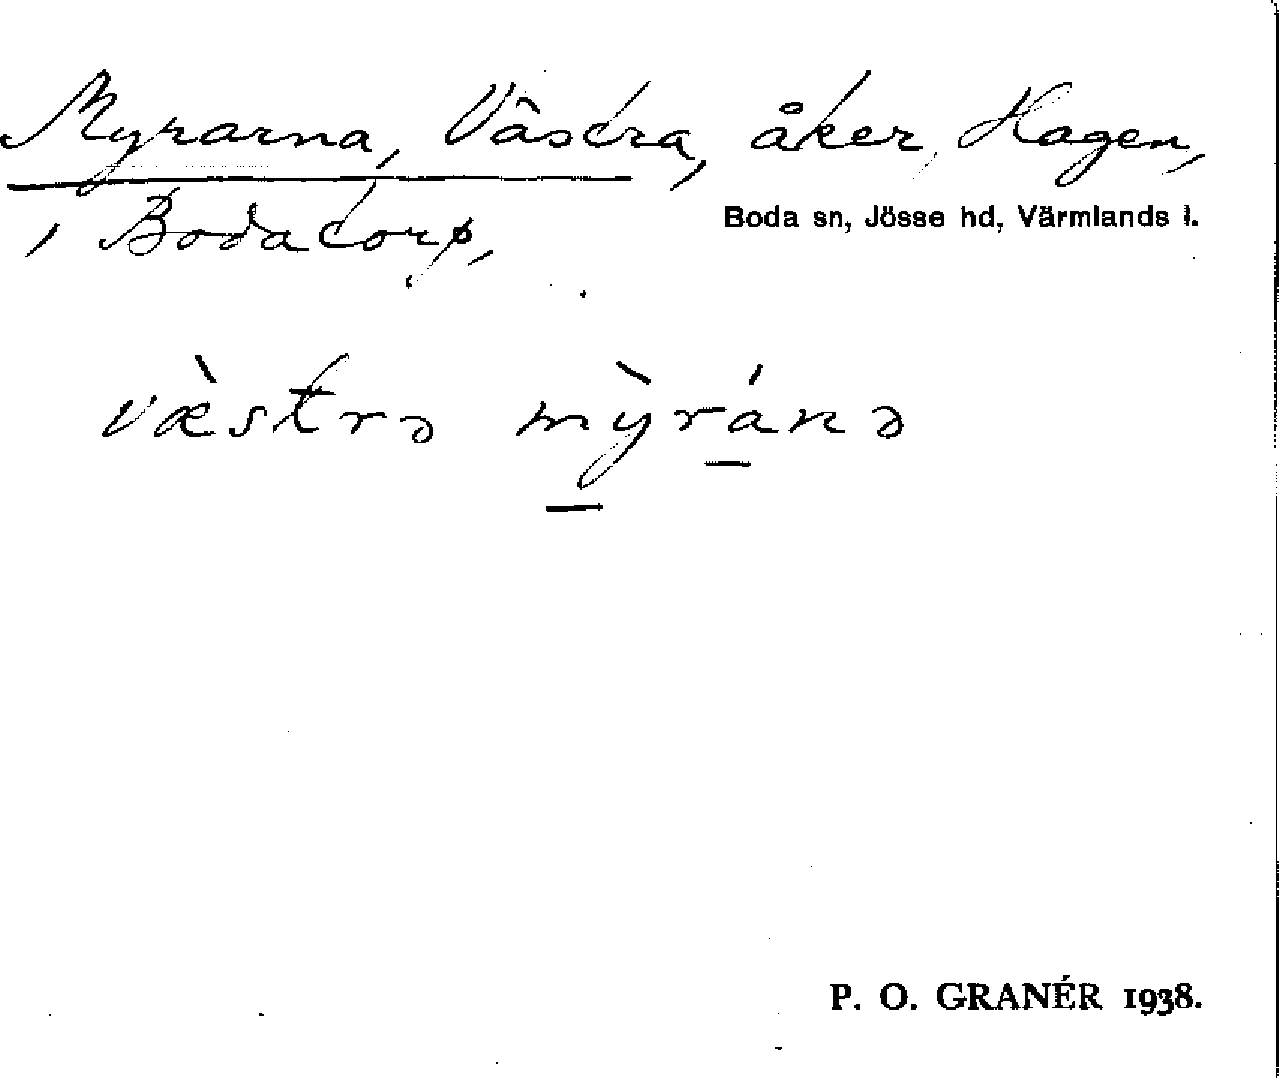 Myrarna, Västra, åker, Hagen,
, Bodatorp,
Boda sn, Jösse hd, Värmlands l.
væ̀strə mỳ̠rá̠nə
P. O. GRANÉR 1938.